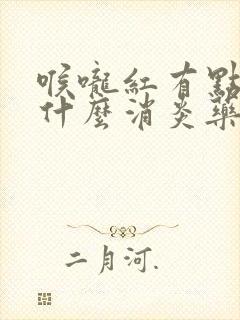 喉嚨紅有點
什麼消炎藥
二月河.